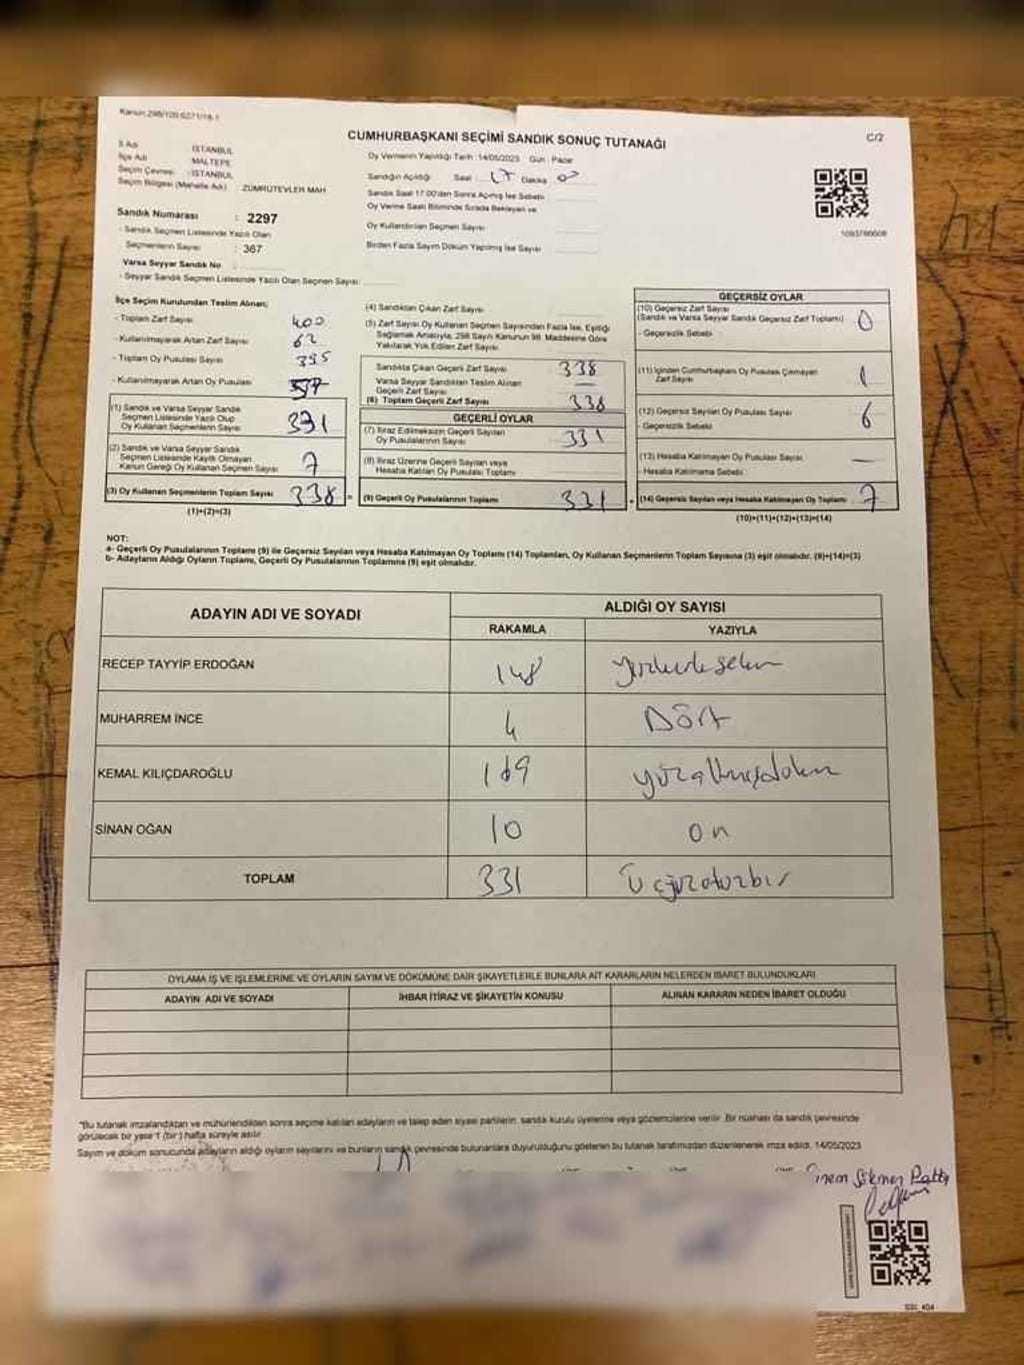 Kanun:298/105 6271/18-1
CUMHURBAŞKANI SEÇİMİ SANDIK SONUÇ TUTANAĞI
C/2
İl Adı İSTANBUL
İlçe Adı MALTEPE
Seçim Çevresi :İSTANBUL
Seçim Bölgesi (Mahalle Adı) : ZÜMRÜTEVLER MAH
Sandık Numarası : 2297
- Sandık Seçmen Listesinde Yazılı Olan
Seçmenlerin Sayısı : 367
Varsa Seyyar Sandık No :
- Seyyar Sandık Seçmen Listesinde Yazılı Olan Seçmen Sayısı :
Oy Vermenin Yapıldığı Tarih :14/05/2023 Gün : Pazar
Sandığın Açıldığı Saat : 17 Dakika 00
Sandık Saat 17:00'den Sonra Açılmış İse Sebebi
Oy Verme Saati Bitiminde Sırada Bekleyen ve
Oy Kullandırılan Seçmen Sayısı
Birden Fazla Sayım Döküm Yapılmış İse Sayısı
İlçe Seçim Kurulundan Teslim Alınan;
- Toplam Zarf Sayısı 400
- Kullanılmayarak Artan Zarf Sayısı 62
- Toplam Oy Pusulası Sayısı 395
- Kullanılmayarak Artan Oy Pusulası
(1) Sandık ve Varsa Seyyar Sandık
Seçmen Listesinde Yazılı Olup
Oy Kullanan Seçmenlerin Sayısı 331
(2) Sandık ve Varsa Seyyar Sandık
Seçmen Listesinde Kayıtlı Olmayan
Kanun Gereği Oy Kullanan Seçmen Sayısı 7
(3) Oy Kullanan Seçmenlerin Toplam Sayısı 338 =
(1)+(2)=(3)
(4) Sandıktan Çıkan Zarf Sayısı
(5) Zarf Sayısı Oy Kullanan Seçmen Sayısından Fazla İse, Eşitliği
Sağlamak Amacıyla, 298 Sayılı Kanunun 98. Maddesine Göre
Yakılarak Yok Edilen Zarf Sayısı
Sandıkta Çıkan Geçerli Zarf Sayısı 338
Varsa Seyyar Sandıktan Teslim Alınan
Geçerli Zarf Sayısı —
(6) Toplam Geçerli Zarf Sayısı 338
GEÇERLİ OYLAR
(7) İtiraz Edilmeksizin Geçerli Sayılan
Oy Pusulalarının Sayısı 331
(8) İtiraz Üzerine Geçerli Sayılan veya
Hesaba Katılan Oy Pusulası Toplamı
(9) Geçerli Oy Pusulalarının Toplamı 331 +
GEÇERSİZ OYLAR
(10) Geçersiz Zarf Sayısı
(Sandık ve Varsa Seyyar Sandık Geçersiz Zarf Toplamı) 0
- Geçersizlik Sebebi
(11) İçinden Cumhurbaşkanı Oy Pusulası Çıkmayan
Zarf Sayısı 1
(12) Geçersiz Sayılan Oy Pusulası Sayısı 6
- Geçersizlik Sebebi
(13) Hesaba Katılmayan Oy Pusulası Sayısı —
- Hesaba Katılmama Sebebi
(14) Geçersiz Sayılan veya Hesaba Katılmayan Oy Toplamı 7
(10)+(11)+(12)+(13)=(14)
NOT:
a- Geçerli Oy Pusulalarının Toplamı (9) ile Geçersiz Sayılan veya Hesaba Katılmayan Oy Toplamı (14) Toplamları, Oy Kullanan Seçmenlerin Toplam Sayısına (3) eşit olmalıdır. (9)+(14)=(3)
b- Adayların Aldığı Oyların Toplamı, Geçerli Oy Pusulalarının Toplamına (9) eşit olmalıdır.
ADAYIN ADI VE SOYADI
ALDIĞI OY SAYISI
RAKAMLA YAZIYLA
RECEP TAYYİP ERDOĞAN 148
MUHARREM İNCE 4 Dört
KEMAL KILIÇDAROĞLU 169 yüzaltmışdokuz
SİNAN OĞAN 10 on
TOPLAM 331 Üçyüzotuzbir
OYLAMA İŞ VE İŞLEMLERİNE VE OYLARIN SAYIM VE DÖKÜMÜNE DAİR ŞİKAYETLERLE BUNLARA AİT KARARLARIN NELERDEN İBARET BULUNDUKLARI
ADAYIN ADI VE SOYADI İHBAR İTİRAZ VE ŞİKAYETİN KONUSU ALINAN KARARIN NEDEN İBARET OLDUĞU
*Bu tutanak imzalandıktan ve mühürlendikten sonra seçime katılan adayların ve talep eden siyasi partilerin sandık kurulu üyelerine veya gözlemcilerine verilir. Bir nüshası da sandık çevresinde
görülecek bir yere 1 (bir) hafta süreyle asılır.
Sayım ve döküm sonucunda adayların aldığı oyların sayılarını ve bunların sandık çevresinde bulunanlara duyurulduğunu gösteren bu tutanak tarafımızdan düzenlenerek imza edildi. 14/05/2023